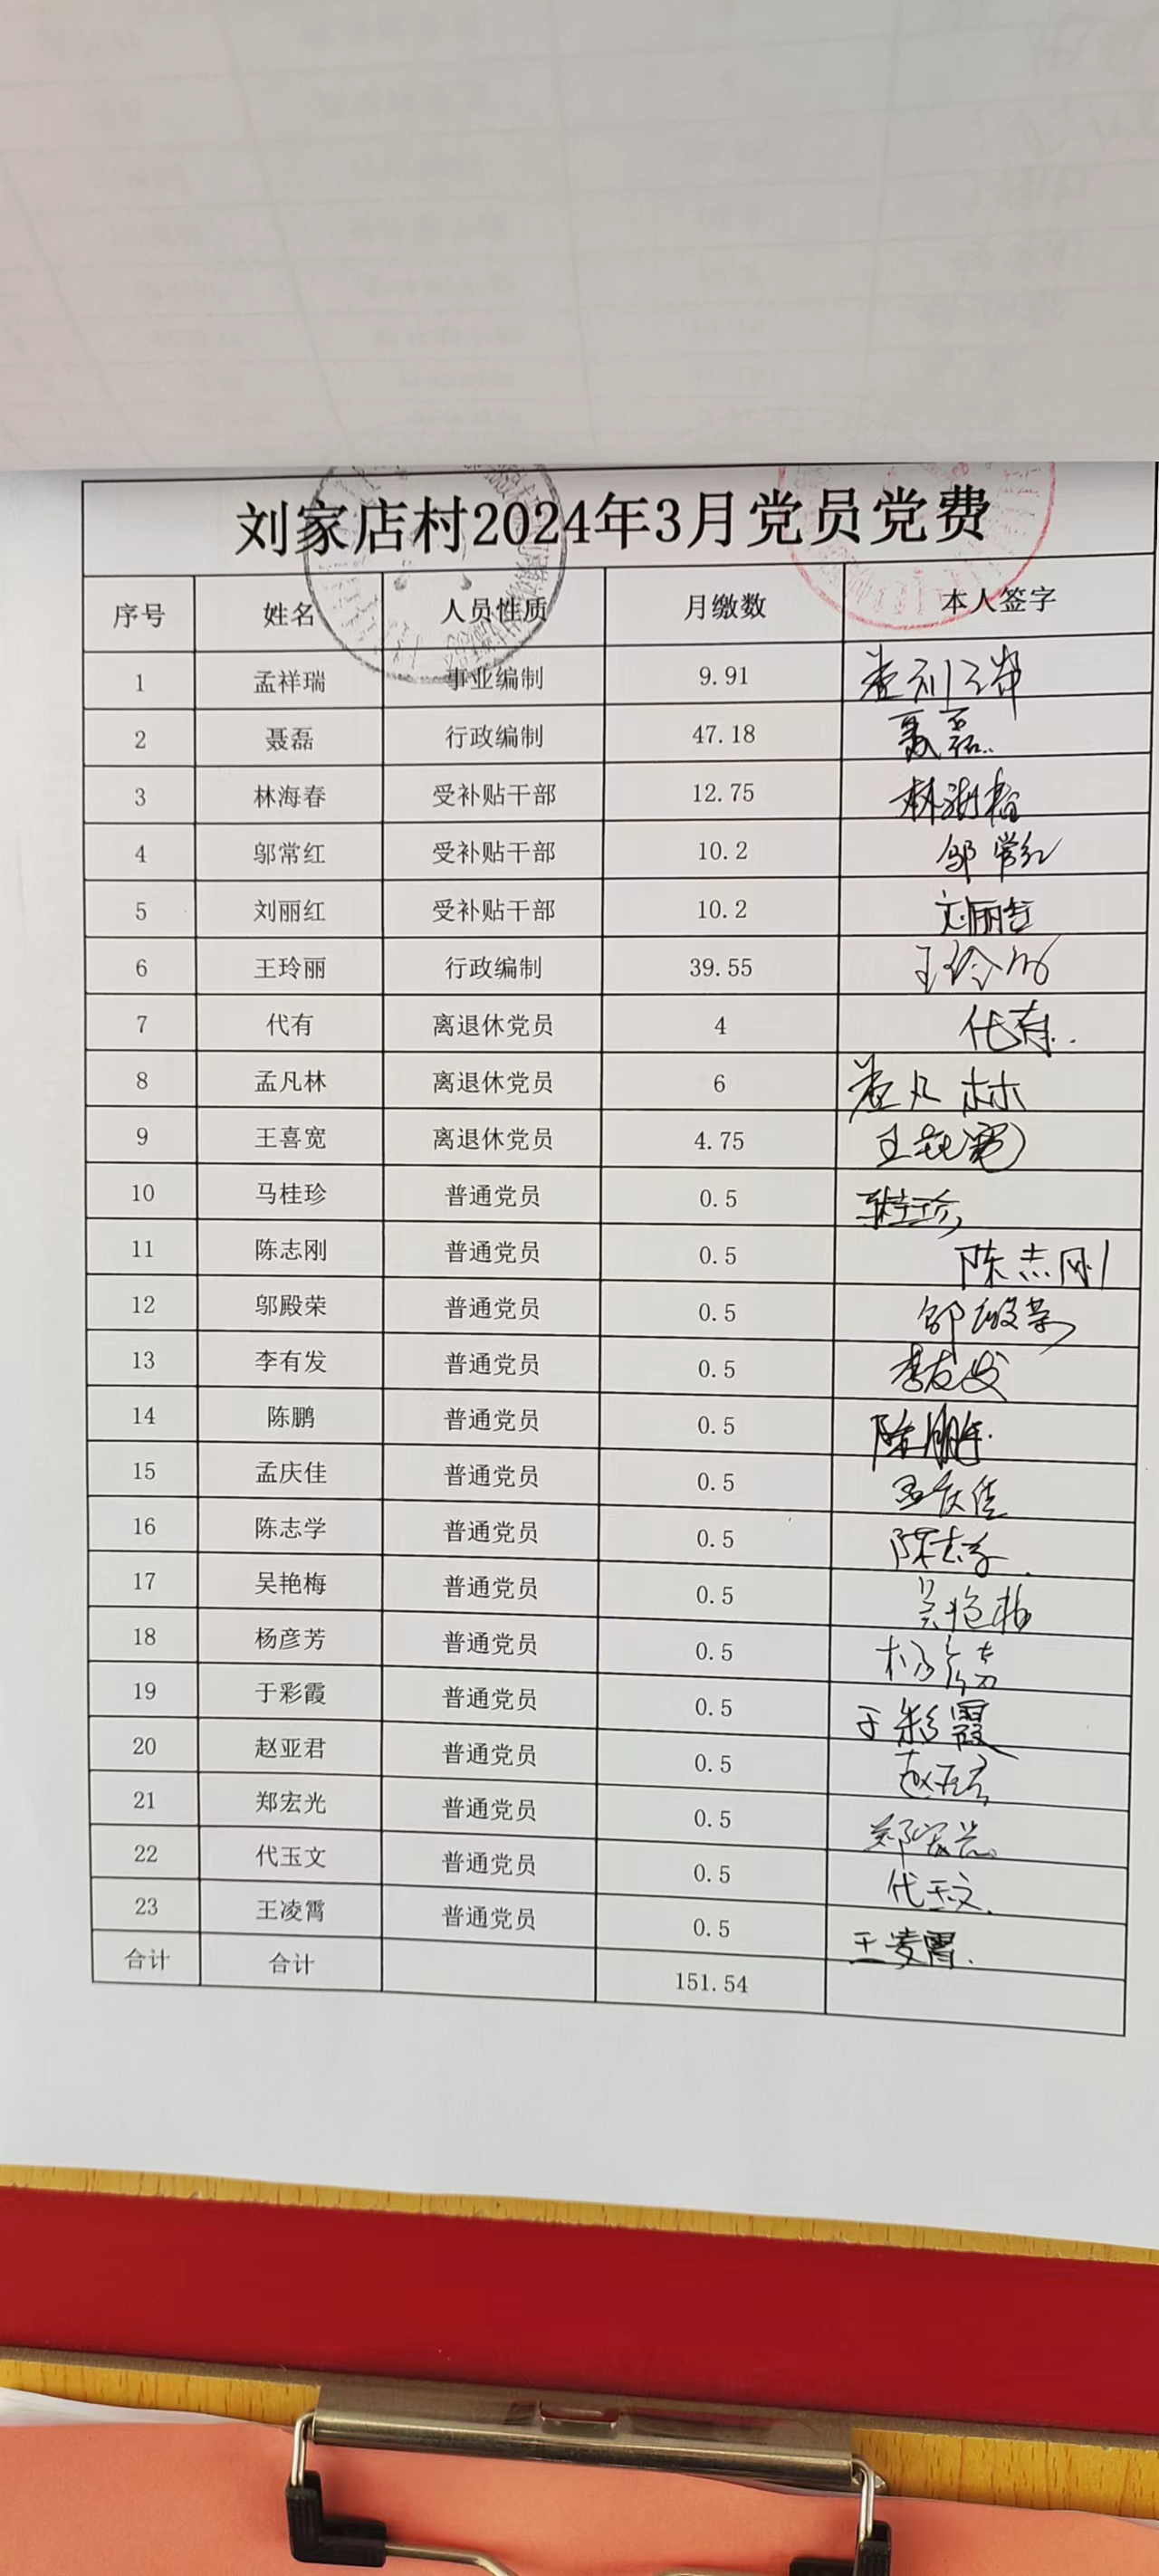 刘家店村2024年3月党员党费
序号 姓名 人员性质 月缴数 本人签字
1 孟祥瑞 事业编制 9.91
2 聂磊 行政编制 47.18 聂磊
3 林海春 受补贴干部 12.75 林海春
4 邬常红 受补贴干部 10.2 邬常红
5 刘丽红 受补贴干部 10.2 刘丽红
6 王玲丽 行政编制 39.55 王玲丽
7 代有 离退休党员 4 代有
8 孟凡林 离退休党员 6 孟凡林
9 王喜宽 离退休党员 4.75 王喜宽
10 马桂珍 普通党员 0.5 马桂珍
11 陈志刚 普通党员 0.5 陈志刚
12 邬殿荣 普通党员 0.5 邬殿荣
13 李有发 普通党员 0.5 李友发
14 陈鹏 普通党员 0.5 陈鹏
15 孟庆佳 普通党员 0.5 孟庆佳
16 陈志学 普通党员 0.5 陈志学
17 吴艳梅 普通党员 0.5 吴艳梅
18 杨彦芳 普通党员 0.5 杨彦芳
19 于彩霞 普通党员 0.5 于彩霞
20 赵亚君 普通党员 0.5 赵亚君
21 郑宏光 普通党员 0.5 郑宏光
22 代玉文 普通党员 0.5 代玉文
23 王凌霄 普通党员 0.5 王凌霄
合计 合计 151.54